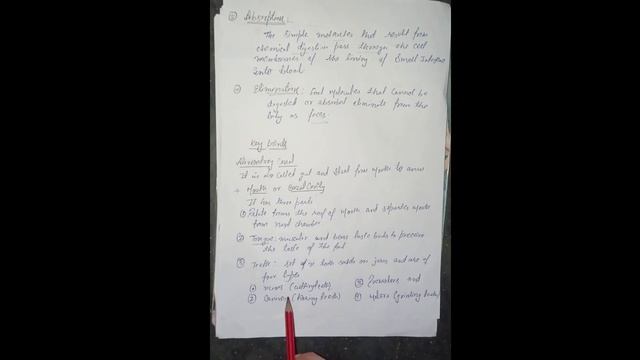 ③ Absorption:
The simple molecules that result from
chemical digestion pass through the cell
membranes of the lining of Small Intestine
into blood
Elimination: food molecules that cannot be
digested or absorbed eliminate from the
body as feces.
Key Points
Alimentary canal
It is also called gut and start from mouth to anus
Mouth or Buccal Cavity
It has three parts
① Palate forms the roof of mouth and separates mouth
from nasal chamber
② Tongue: muscular and bears taste buds to perceive
the taste of the food
③ Teeth: set in both on jaws and are of
four types
① (cutting teeth) ③ Premolars
② Canines (tearing teeth) ④ molars (grinding teeth)